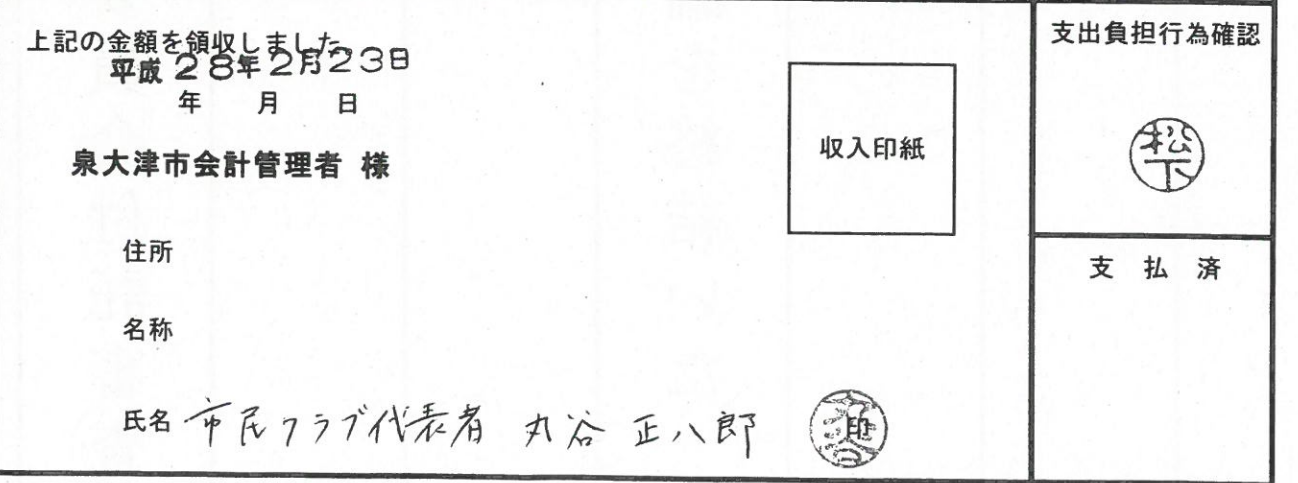 上記の金額を領収しました。
平成28年2月23日
年 月 日
泉大津市会計管理者 様
住所
名称
氏名 市民クラブ代表者 丸谷 正八郎 印
収入印紙
支出負担行為確認
松下
支 払 済